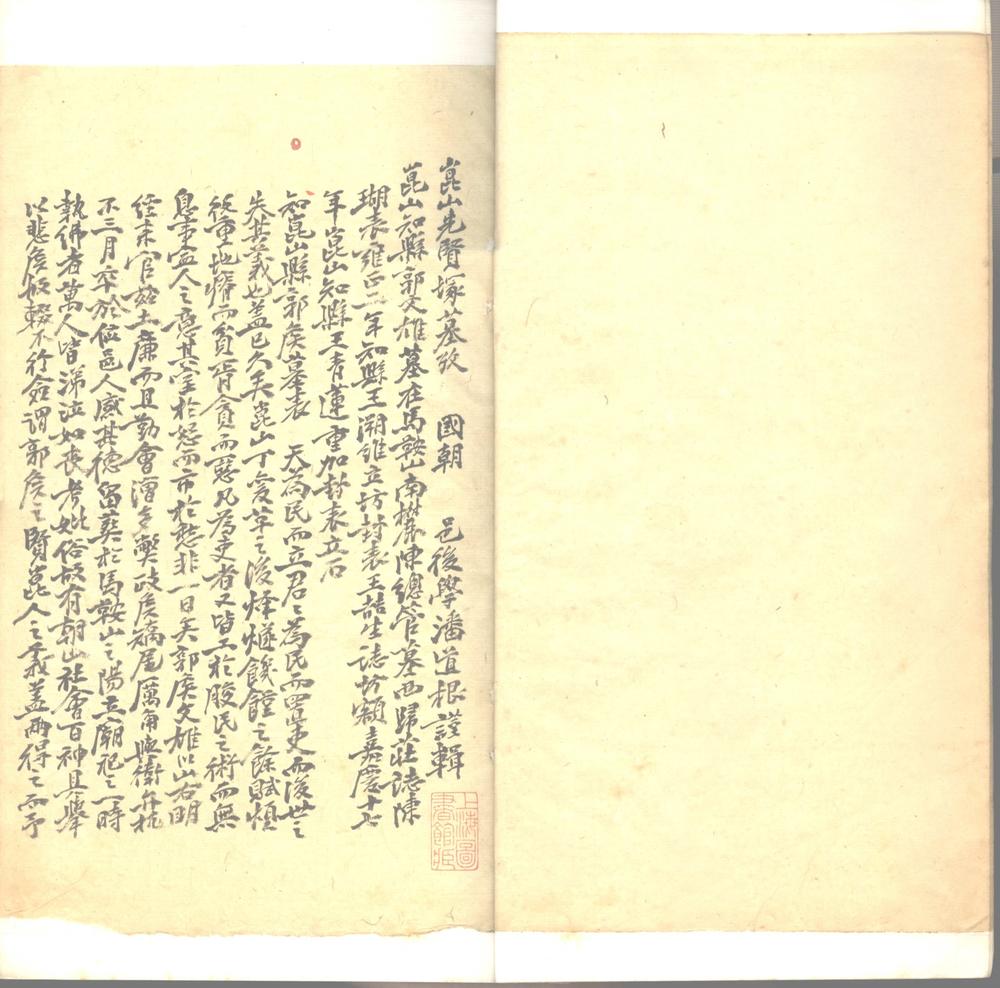 崑山先賢塚墓攷　國朝　邑後學潘道根謹輯
崑山知縣郭文雄墓在馬鞍山南麓陳總管墓西歸莊誌陳
瑚表雍正二年知縣王溯維立坊封表王喆生誌坊額嘉慶十七
年崑山知縣王青蓮重加封表立石
知崑山縣郭侯墓表　天為民而立君〻為民而置吏而後世之
失其義也蓋已久矣崑山丁喪草之後烽燧饑饉之餘賦煩
役重地瘠而貧胥貪而惡凡為吏者又皆工於朘民之術而無
息事寍人之意其室於怒而市於愁非一日矣郭侯文雄以山右明
經来官茲土廉而且勤會漕多弊政侯矯尾厲角與衛弁抗
不三月卒於位邑人感其德留葬於馬鞍山之陽立廟祀之一時
執紼者萬人皆涕泣如喪考妣俗故有朝山社會百神具舉
以悲侯故輟不行僉謂郭侯之賢崑人之義蓋兩得之而予
上海圖書館藏